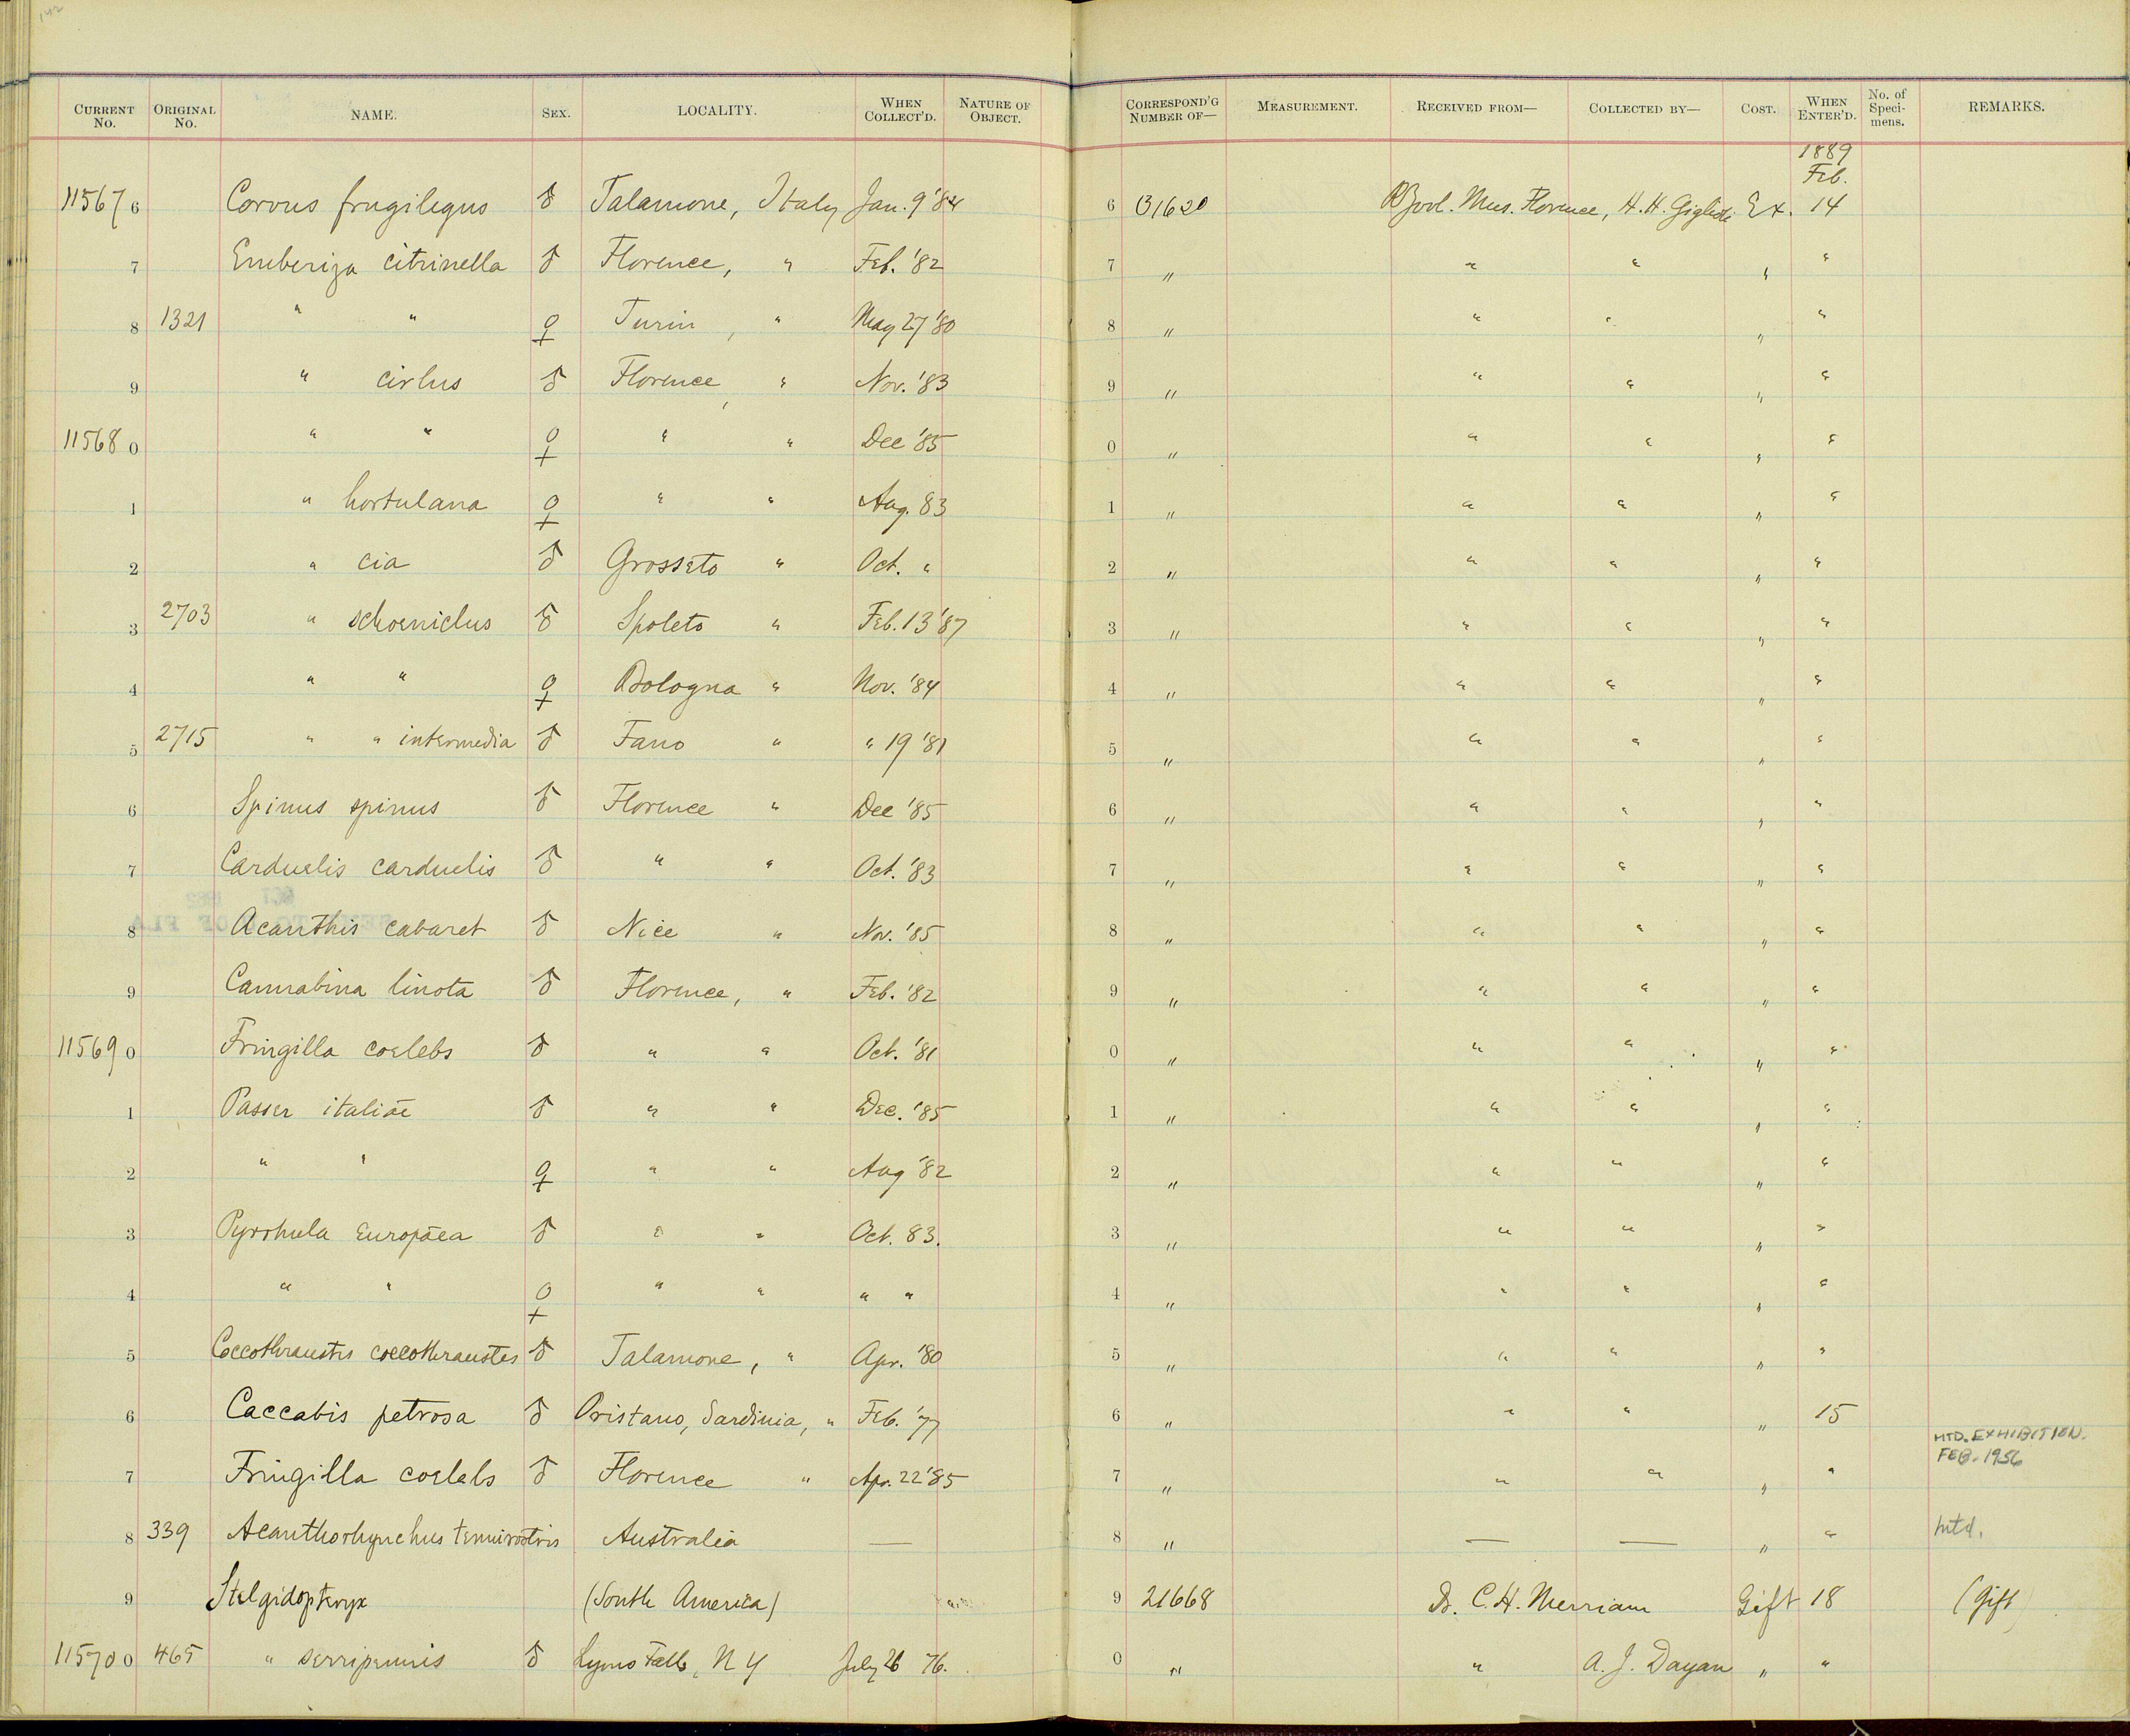 142
CURRENT No. ORIGINAL No. NAME. SEX. LOCALITY. WHEN COLLECT'D. NATURE OF OBJECT. CORRESPOND'G NUMBER OF— MEASUREMENT. RECEIVED FROM— COLLECTED BY— COST. WHEN ENTER'D. No. of Speci-mens. REMARKS.
1889
Feb.
11567 6 Corvus frugilegus ♂ Talamone, Italy Jan. 9 '84 6 Zool. Mus. Florence, H. H. Giglioli Ex. 14
7 Emberiza citrinella ♂ Florence, " Feb. '82 7 " " " " "
8 1321 " " ♀ Turin, " May 27 '80 8 " " " " "
9 " cirlus ♂ Florence, " Nov. '83 9 " " " " "
11568 0 " " ♀ " " Dec '85 0 " " " " "
1 " hortulana ♀ " " Aug. 83 1 " " " " "
2 " cia ♂ Grosseto " Oct. " 2 " " " " "
3 2703 " schoeniclus ♂ Spoleto " Feb. 13 '87 3 " " " " "
4 " " ♀ Bologna " Nov. '84 4 " " " " "
5 2715 " " intermedia ♂ Fano " " 19 '81 5 " " " " "
6 Spinus spinus ♂ Florence " Dec '85 6 " " " " "
7 Carduelis carduelis ♂ " " Oct. '83 7 " " " " "
8 Acanthis cabaret ♂ Nice " Nov. '85 8 " " " " "
9 Cannabina linota ♂ Florence, " Feb. '82 9 " " " " "
11569 0 Fringilla coelebs ♂ " " Oct. '81 0 " " " " "
1 Passer italiae ♂ " " Dec. '85 1 " " " " "
2 " " ♀ " " Aug '82 2 " " " " "
3 Pyrrhula europaea ♂ " " Oct. 83. 3 " " " " "
4 " " ♀ " " " " 4 " " " " "
5 Coccothraustes coccothraustes ♂ Talamone, " Apr. '80 5 " " " " "
6 Caccabis petrosa ♂ Oristano, Sardinia, " Feb. '77 6 " " " " 15
MTD. EXHIBITION.
FEB. 1956
7 Fringilla coelebs ♂ Florence " Apr. 22 '85 7 " " " " "
8 339 Acanthorhynchus tenuirostris Australia — 8 " — — " " mtd.
9 Stelgidopteryx (South America) 9 21668 Dr. C. H. Merriam Gift 18 (Gift)
11570 0 465 " serripennis ♂ Lyons Falls, N Y July 26 76. 0 " " A. J. Dayan " "